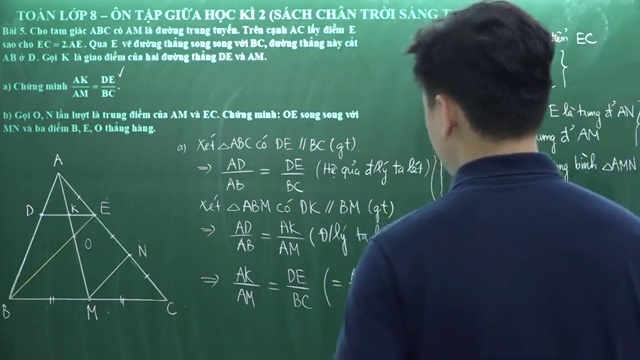 TOÁN LỚP 8 – ÔN TẬP GIỮA HỌC KÌ 2 (SÁCH CHÂN TRỜI SÁNG T
Bài 5. Cho tam giác ABC có AM là đường trung tuyến. Trên cạnh AC lấy điểm E
sao cho EC = 2.AE. Qua E vẽ đường thẳng song song với BC, đường thẳng này cắt
AB ở D. Gọi K là giao điểm của hai đường thẳng DE và AM.
a) Chứng minh AK/AM = DE/BC.
b) Gọi O, N lần lượt là trung điểm của AM và EC. Chứng minh: OE song song với
MN và ba điểm B, E, O thẳng hàng.
a) Xét △ABC có DE // BC (gt)
⇒ AD/AB = DE/BC (Hệ quả đ/lý ta lét)
Xét △ABM có DK // BM (gt)
⇒ AD/AB = AK/AM (Đ/lý ta
⇒ AK/AM = DE/BC (=
EC
E là trung đ' AN
đ' AM
bình △AMN
A
D K E
O
N
B M C